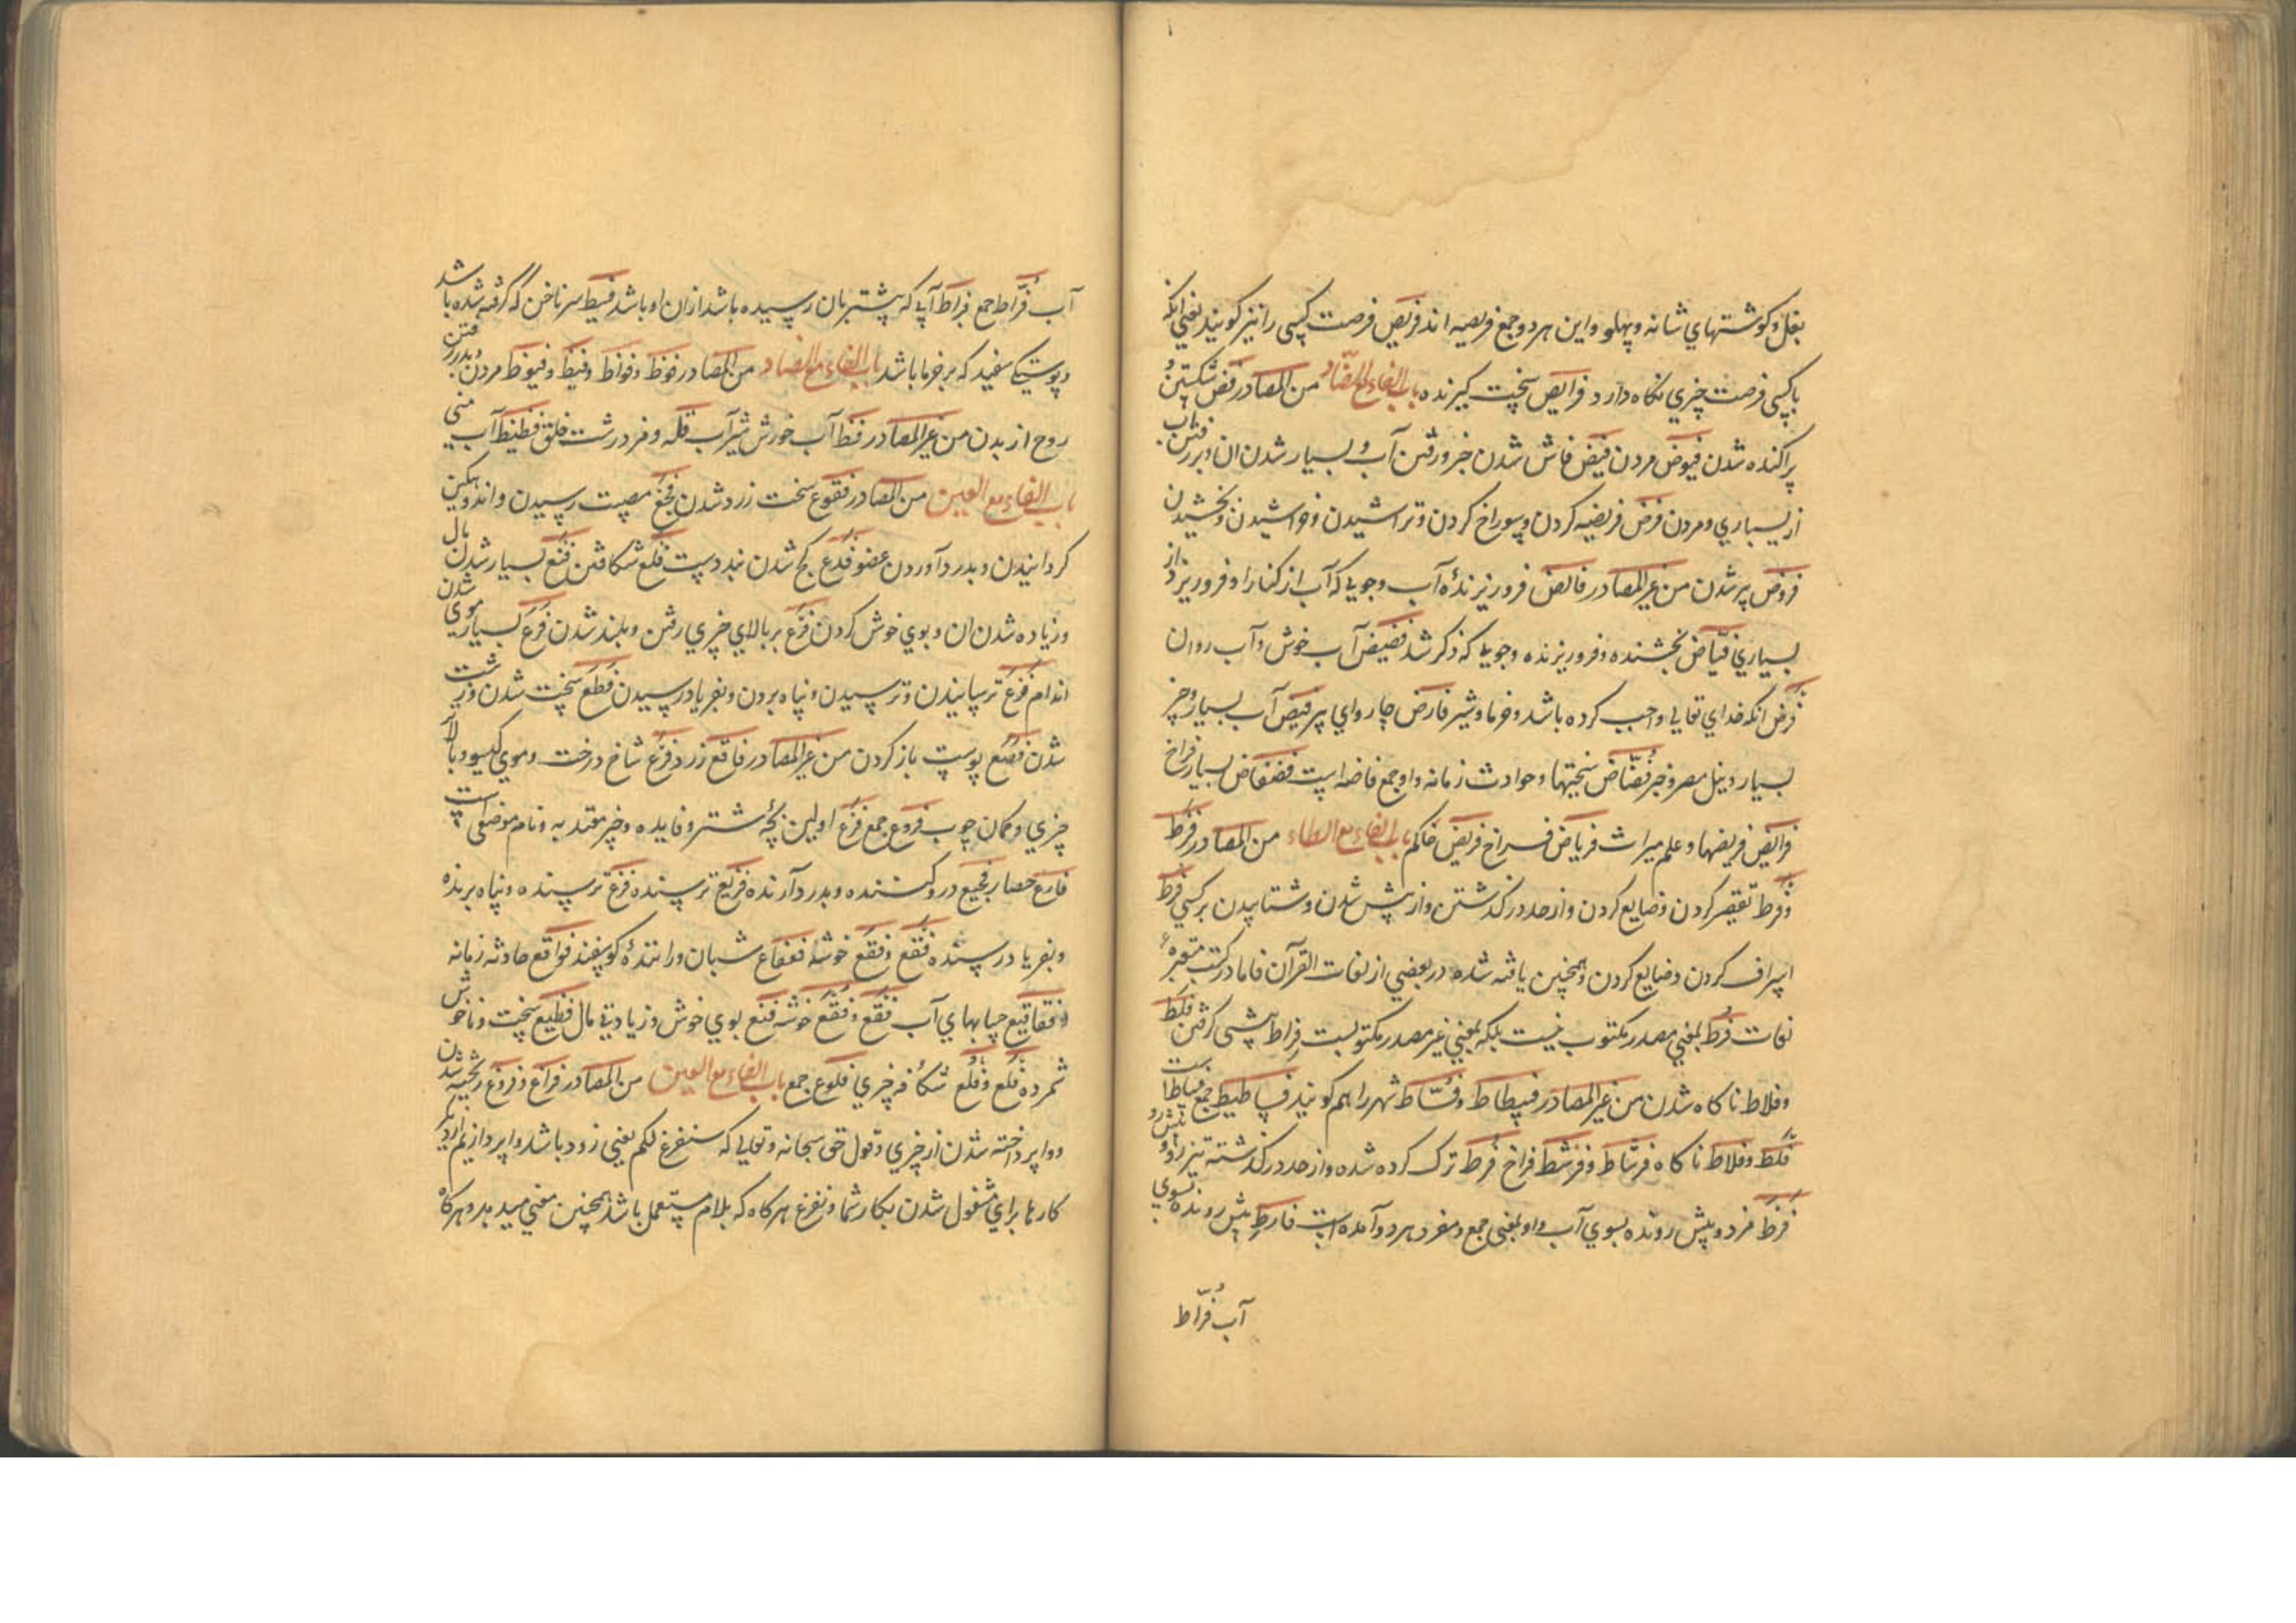 بغل و کوشتهاي شانه و پهلو و این هر دو جمع فریصه اند فریص فرصت کسی را نیز کویند یعني انکه
با کسی فرصت چیزي نکاه دارد فرایص سخت کیرنده باب الفاء مع الضاد من المصادر فض شکستن و
پراکنده شدن فیوض مردن فیض فاش شدن خبر و رفتن آب و بسیار شدن ان و بررفتن آب
از بسیاري و مردن فرض فریضه کردن و سوراخ کردن و تراشیدن و خراشیدن و بخشیدن
فروض پر شدن من غیر المصادر فائض فروریزندۀ آب و جویي که آب از کنارا و فرو ریزد از
بسیاري فیاض بخشنده و فروریزنده و جویي که ذکر شد فضیض آب خوش و آب روان
فرض انکه خداي تعالي واجب کرده باشد و خرما و شیر فارض چارواي پیر فیض آب بسیار و چیز
بسیار و نیل مصر و خبر فضاض سختیها و حوادث زمانه و او جمع فاضه است فضفاض بسیار فراخ
فرایض فریضها و علم میراث فریاض فراخ فریض حاکم باب الفاء مع الطاء من المصادر فرط
و فرط تقصیر کردن و ضایع کردن و از حد درکذشتن و از پیش شدن و شتابیدن بر کسي فرط
اسراف کردن و ضایع کردن و همچنین یافته شده در بعضي از لغات القرآن فاما در کتب معتبرۀ
لغات فرط بمعني مصدر مکتوب نیست بلکه بمعني غیر مصدر مکتوبست فراط پیشی کرفتن فلط
و فلاط ناکاه شدن من غیر المصادر فسطاط و فستاط شهر را هم کویند فساطیط جمع فسطاط است
فلط و فلاط ناکاه فرشاط و فرشط فراخ فرط ترک کرده شده و از حد درکذشته تیزرو و پیش رو
فرط فرد و پیش رونده بسوي آب و او بمعنی جمع و مفرد هر دو آمده است فارط پیش رونده بسوي
آب فراط
آب فراط جمع فراط آبي که پیشتر بان رسیده باشد از ان او باشد فسیط سر ناخن که کرفته شده باشد
و پوستک سفید که بر خرما باشد باب الفاء مع الضاد من المصادر فوظ و فواظ و فیظ و فیوظ مردن و بدر رفتن
روح از بدن من غیر المصادر فظ آب خورش شیر آب قله و مرد درشت خلق فظیظ آب منی
باب الفاء مع العین من المصادر فقوع سخت زرد شدن فجع مصیبت رسیدن و اندوهکین
کردانیدن و بدرد آوردن عضو فدع کج شدن بند دست فلع شکافتن فنع بسیار شدن مال
و زیاده شدن ان و بوي خوش کردن فرع بر بالاي چیزي رفتن و بلند شدن فرع بسیاري موي شدن
اندام فزع ترسانیدن و ترسیدن و پناه بردن و بفریاد رسیدن فظع سخت شدن و زشت
شدن فصع پوست باز کردن من غیر المصادر فاقع زرد فرع شاخ درخت و موي کیسو و بالاي
چیزي و کمان چوب فروع جمع فرع اولین بچۀ شتر و فایده و چیز معتد به و نام موضعي است
فارع حصار فجیع درد کننده و بدرد آرنده فزیع ترسنده فزع ترسنده و پناه برنده
و بفریاد رسنده فقع و فقع خوشه فعفاع شبان و رانندۀ کوسفند فواقع حادثه زمانه
فقاقیع حبابهاي آب فقع و فقع خوشه فنع بوي خوش و زیادتي مال فظیع سخت و ناخوش
شمرده فلع و فلع شکافه چیزي فلوع جمع باب الفاء مع الغین من المصادر فراغ و فروغ ریخته شدن
و واپرداخته شدن از چیزي و قول حق سبحانه و تعالي که سنفرغ لکم یعني زود باشد واپردازیم از دیکر
کارها براي مشغول شدن بکار شما و نفرغ هرکاه که بلام مستعمل باشد همچنین معني میدهد و هرکاه